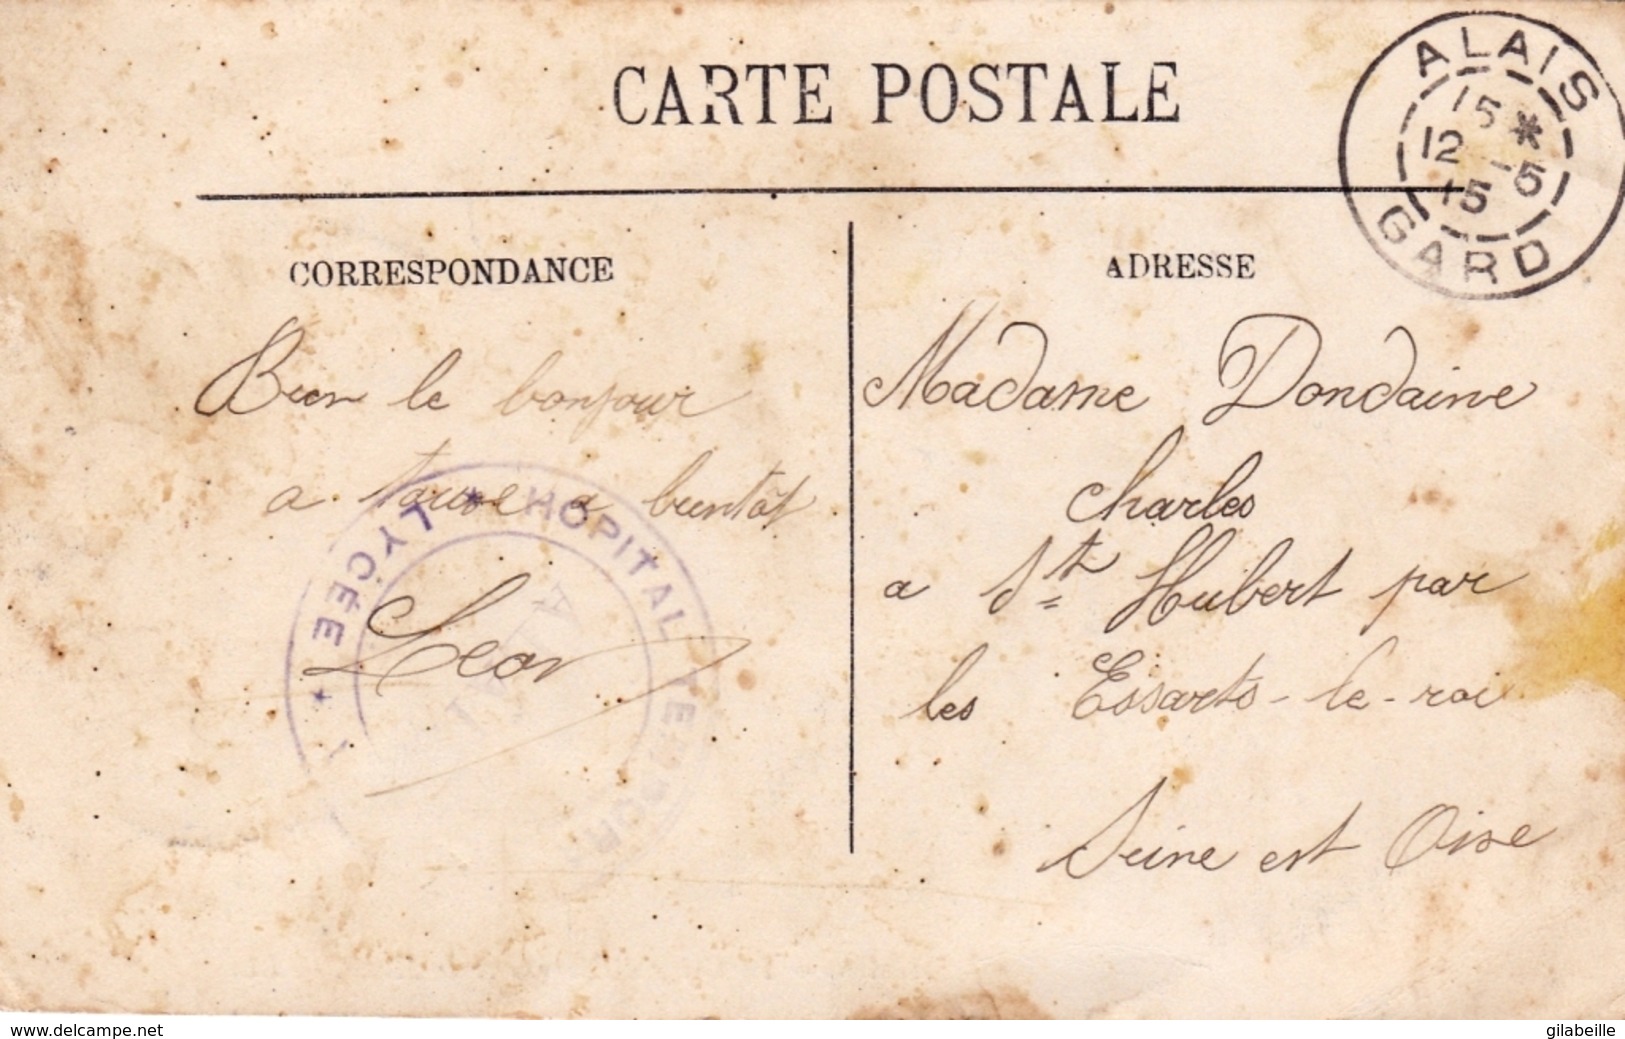 CARTE POSTALE
ALAIS
15 *
12 - 5
15
GARD
CORRESPONDANCE
Bien le bonjour
a a bientôt
Leon
LYCÉE * HOPITAL
ADRESSE
Madame Dondaine
Charles
a St Hubert par
les Essarts-le-roi
Seine est Oise
www.delcampe.net
gilabeille